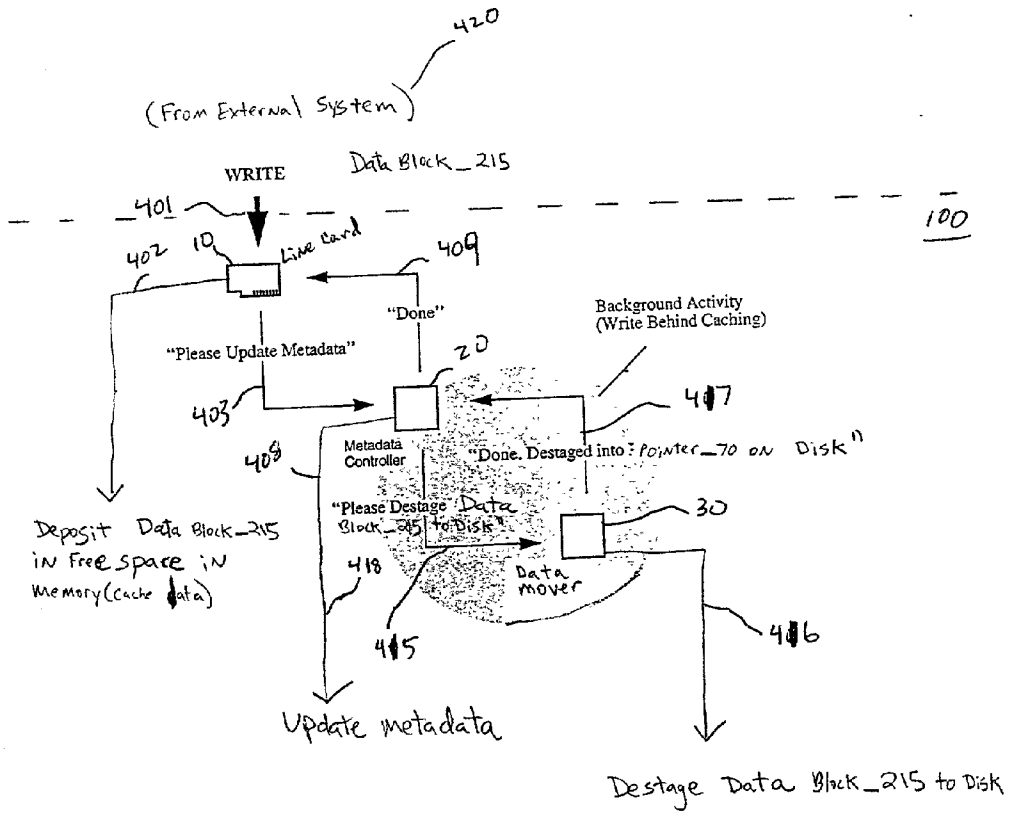 420
(From External System)
WRITE
Data Block_215
401
100
402
10
Line Card
409
"Done"
Background Activity
(Write Behind Caching)
"Please Update Metadata"
20
403
417
408
Metadata
Controller
"Done. Destaged into: Pointer_70 on Disk"
"Please Destage Data
Block_215 to Disk"
30
Deposit Data Block_215
in Free space in
Memory (cache data)
418
Data
mover
415
416
Update metadata
Destage Data Block_215 to Disk